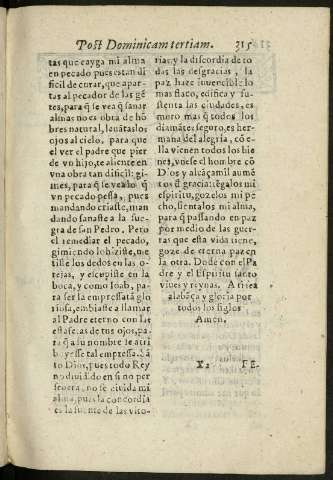 Post Dominicam tertiam. 315
tas que cayga mi alma
en pecado pues estan di
ficil de curar, que apar-
tas al pecador de las gē
tes, para q̄ se vea q̄ sanar
almas no es obra de hō
bres natural, leuātas los
ojos al cielo, para que
el ver el padre que pier
de vn hijo, te aliente en
vna obra tan dificil: gi-
mes, para q̄ se vea lo q̄
vn pecado pesa, pues
mandando criaste, man
dando sanaste a la sue-
gra de san Pedro. Pero
el remediar el pecado,
gimiendo lo hiziste, me
tiste los dedos en las o-
rejas, y escupiste en la
boca, y como Ioab, pa-
ra ser la empressa tā glo
riosa, embiaste a llamar
al Padre eterno con las
estafetas de tus ojos, pa-
ra q̄ a su nombre se atri
buyesse tal empressa. Sā
to Dios, pues todo Rey
no diuidido en si no per
seuera, no se diuida mi
alma, pues la concordia
es la fuente de las vito-
rias: y la discordia de to
das las desgracias, la
paz haze inuencible lo
mas flaco, edifica y su-
stenta las ciudades, es
muro mas q̄ todos los
diamātes seguro, es her
mana del alegria, cō e-
lla vienen todos los bie
nes, vnese el hombre cō
Dios y alcāçamil aumē
tos d̄ gracia: tēgalos mi
espiritu, gozelos mi pe
cho, sientalos mi alma,
para q̄ passando en paz
por medio de las guer-
ras que esta vida tiene,
goze de eterna paz en
la otra. Dōde con el Pa
dre y el Espiritu santo
viues y reynas. A ti sea
alabāça y gloria por
todos los siglos
Amen.
FE-